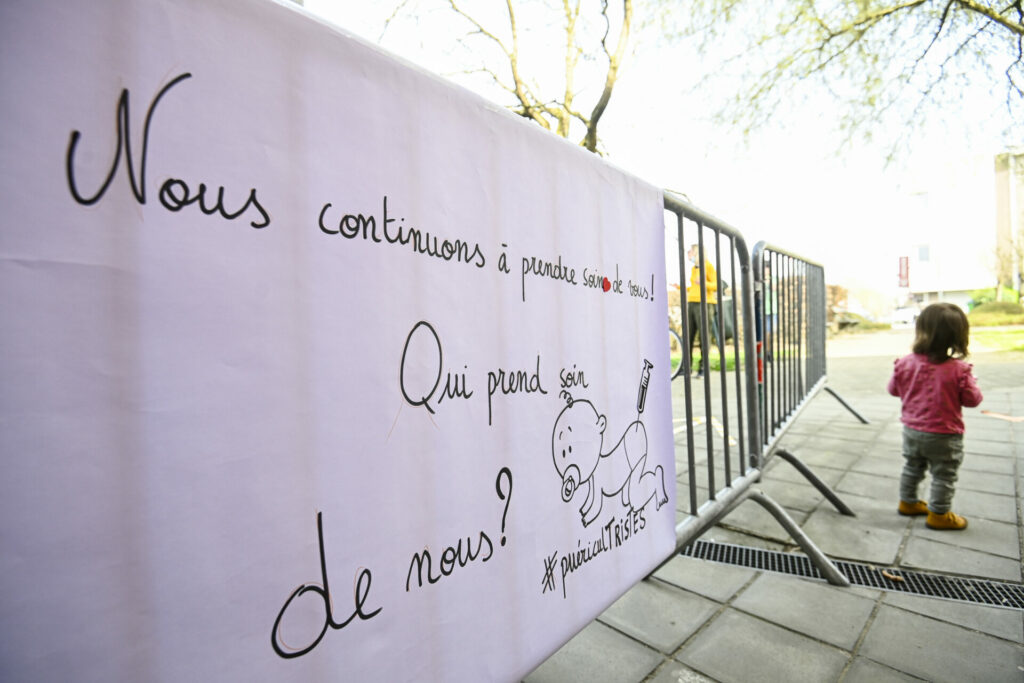 Nous continuons à prendre soin de vous!
Qui prend soin
de nous?
#puériculTRISTES